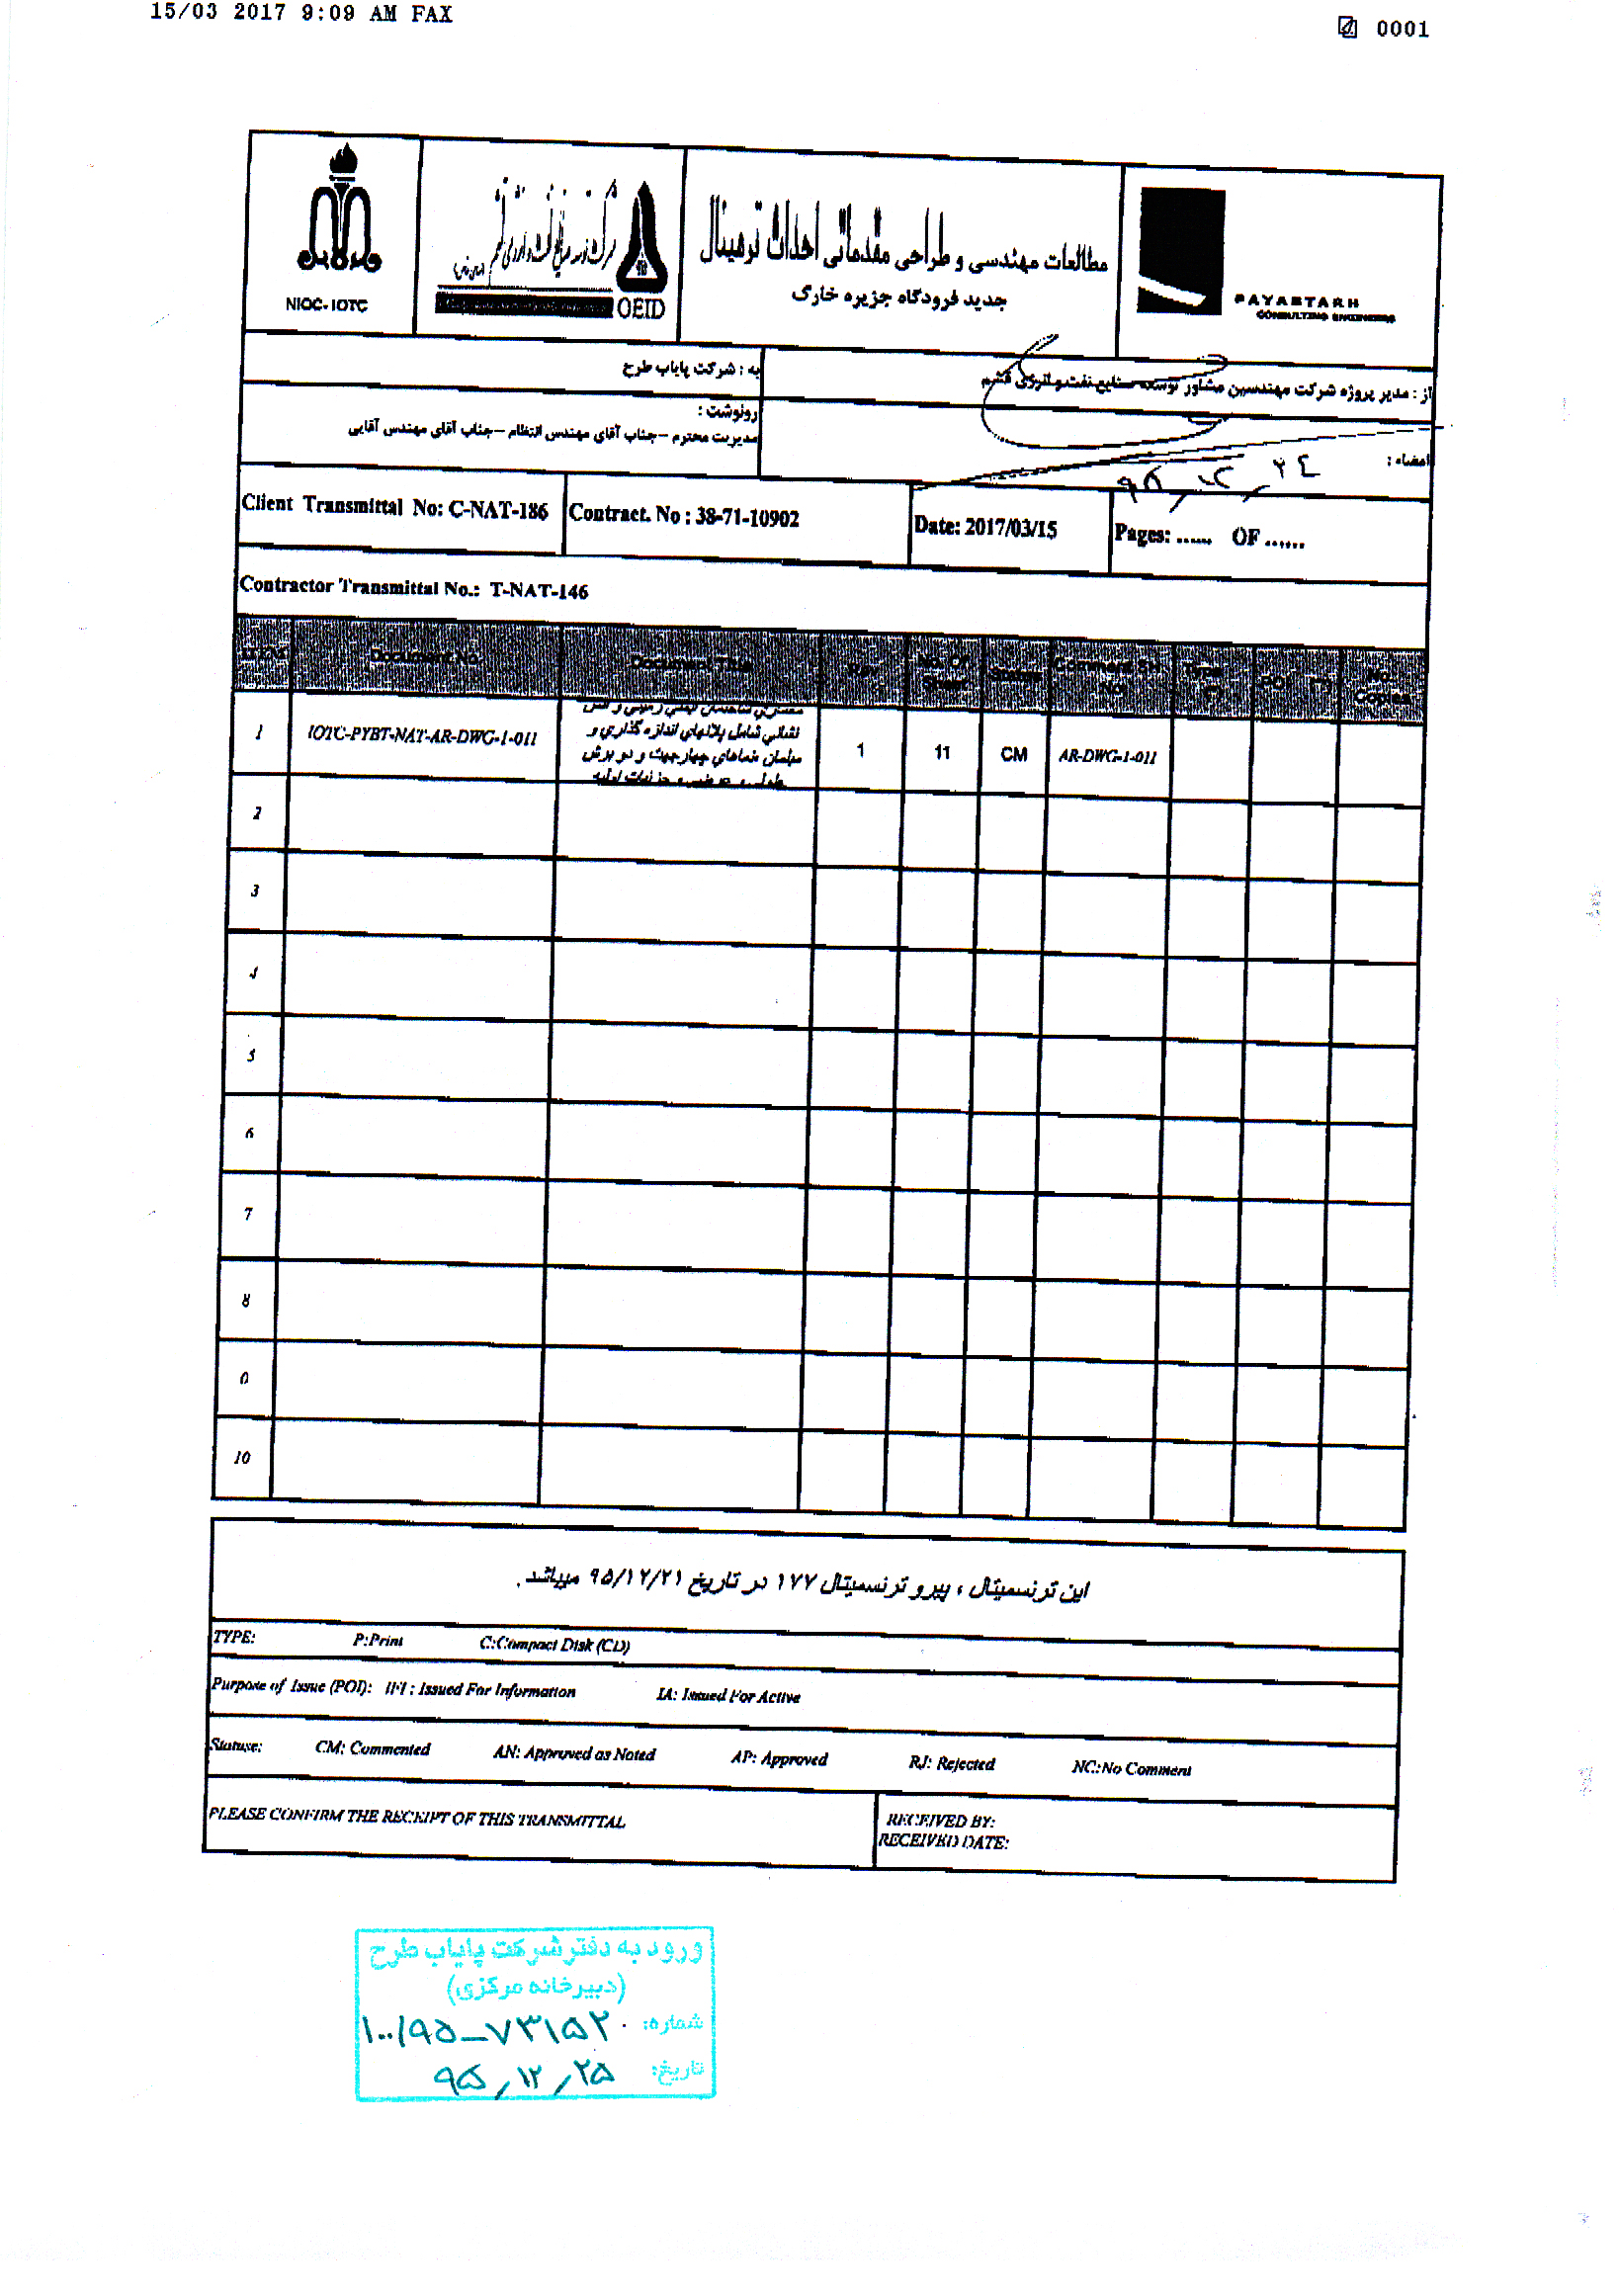 15/03 2017 9:09 AM FAX
0001
NIOC-IOTC
OEID
مطالعات مهندسی و طراحی مقدماتی احداث ترمینال
جدید فرودگاه جزیره خارگ
PAYABTARH
CONSULTING ENGINEERS
از : مدیر پروژه شرکت مهندسین مشاور توسعه صنایع نفت و انرژی قشم
به : شرکت پایاب طرح
رونوشت :
مدیریت محترم – جناب آقای مهندس انتظام – جناب آقای مهندس آقایی
امضاء :
۹۵/۱۲/۲۴
Client Transmittal No: C-NAT-186
Contract. No : 38-71-10902
Date: 2017/03/15
Pages: ...... OF ......
Contractor Transmittal No.: T-NAT-146
ITEM Document No. Document Title Rev. No. Of Sheet Status Comment SH. No. Type POI No. Copies
1 IOTC-PYBT-NAT-AR-DWG-1-011
نشانی شامل پلانهای اندازه گذاری و
مبلمان نماهای چهارجهت و دو برش
طولی و عرضی و جزئیات اولیه
1 11 CM AR-DWG-1-011
2
3
4
5
6
7
8
9
10
این ترنسمیتال ، پیرو ترنسمیتال ۱۷۷ در تاریخ ۹۵/۱۲/۲۱ میباشد .
TYPE: P:Print C:Compact Disk (CD)
Purpose of Issue (POI): IFI : Issued For Information IA: Issued For Active
Statuse: CM: Commented AN: Approved as Noted AP: Approved RJ: Rejected NC:No Comment
PLEASE CONFIRM THE RECEIPT OF THIS TRANSMITTAL
RECEIVED BY:
RECEIVED DATE:
ورود به دفتر شرکت پایاب طرح
(دبیرخانه مرکزی)
شماره: ۱۰۰/۹۵-۷۳۱۵۲
تاریخ: ۹۵/۱۲/۲۵